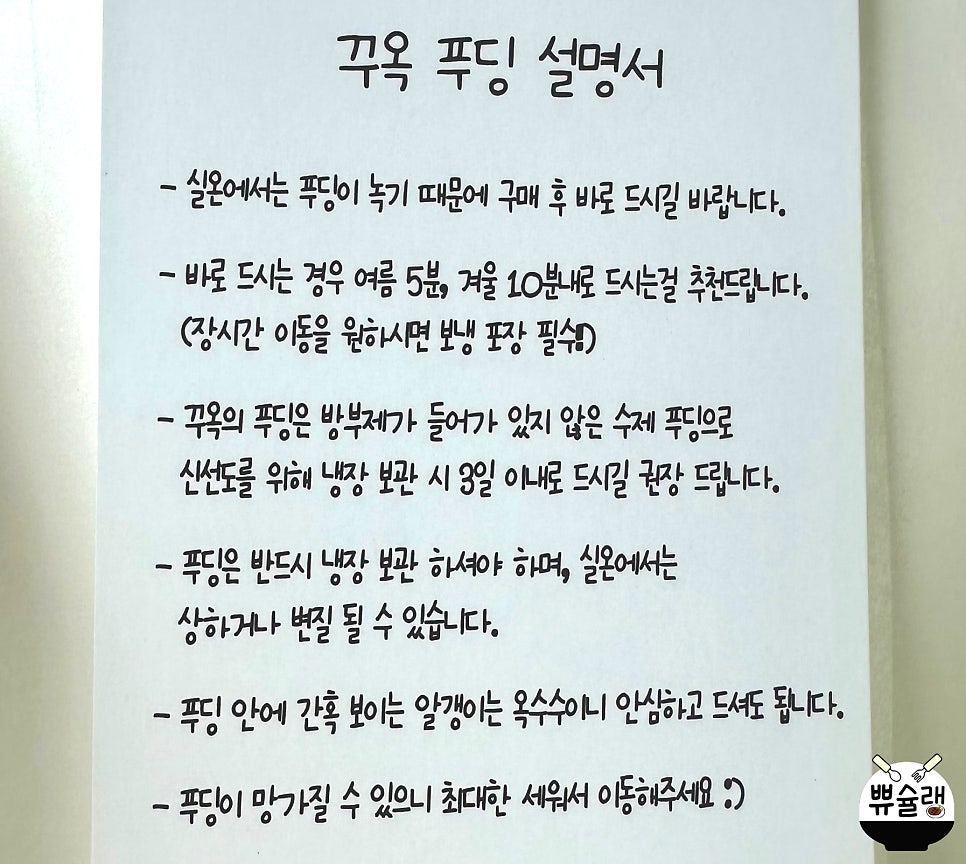 꾸옥 푸딩 설명서
- 실온에서는 푸딩이 녹기 때문에 구매 후 바로 드시길 바랍니다.
- 바로 드시는 경우 여름 5분, 겨울 10분내로 드시는걸 추천드립니다.
(장시간 이동을 원하시면 보냉 포장 필수!!)
- 꾸옥의 푸딩은 방부제가 들어가 있지 않은 수제 푸딩으로
신선도를 위해 냉장 보관 시 3일 이내로 드시길 권장 드립니다.
- 푸딩은 반드시 냉장 보관 하셔야 하며, 실온에서는
상하거나 변질 될 수 있습니다.
- 푸딩 안에 간혹 보이는 알갱이는 옥수수이니 안심하고 드셔도 됩니다.
- 푸딩이 망가질 수 있으니 최대한 세워서 이동해주세요 :)
쀼슐랭